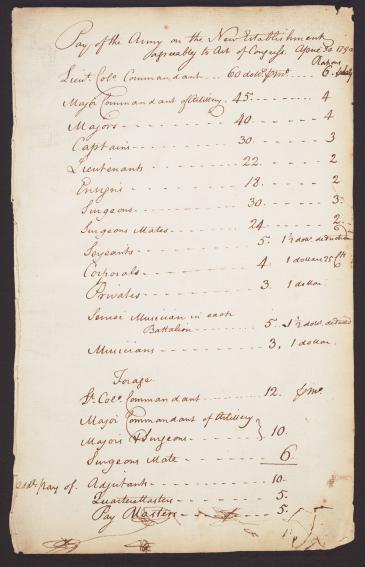 Pay of the Army on the New Establishment
agreeably to Act of Congress. April 30 1790
Rations
Lieut. Colo. Commandant ... 60 dolls. ⅌ mo. ... 6. daily
Major Commandant of Artillery. 45 ... 4
Majors ... 40 ... 4
Captains ... 30 ... 3
Lieutenants ... 22 ... 2
Ensigns ... 18 ... 2
Surgeons ... 30 ... 3
Surgeons Mates ... 24 ... 2
Serjeants ... 5. 1½ dol. deduction
Corporals ... 4. 1 dollar 25
Privates ... 3. 1 dollar
Senior Musician in each
Battalion ... 5. 1½ dol. deduced
Musicians ... 3. 1 dollar.
Forage
Lt. Colo. Commandant ... 12. ⅌ mo.
Major Commandant of Artillery
Majors & Surgeons ... 10.
Surgeons Mate ... 6
addl. pay of. Adjutants ... 10.
Quartermasters ... 5.
Pay Masters ... 5.